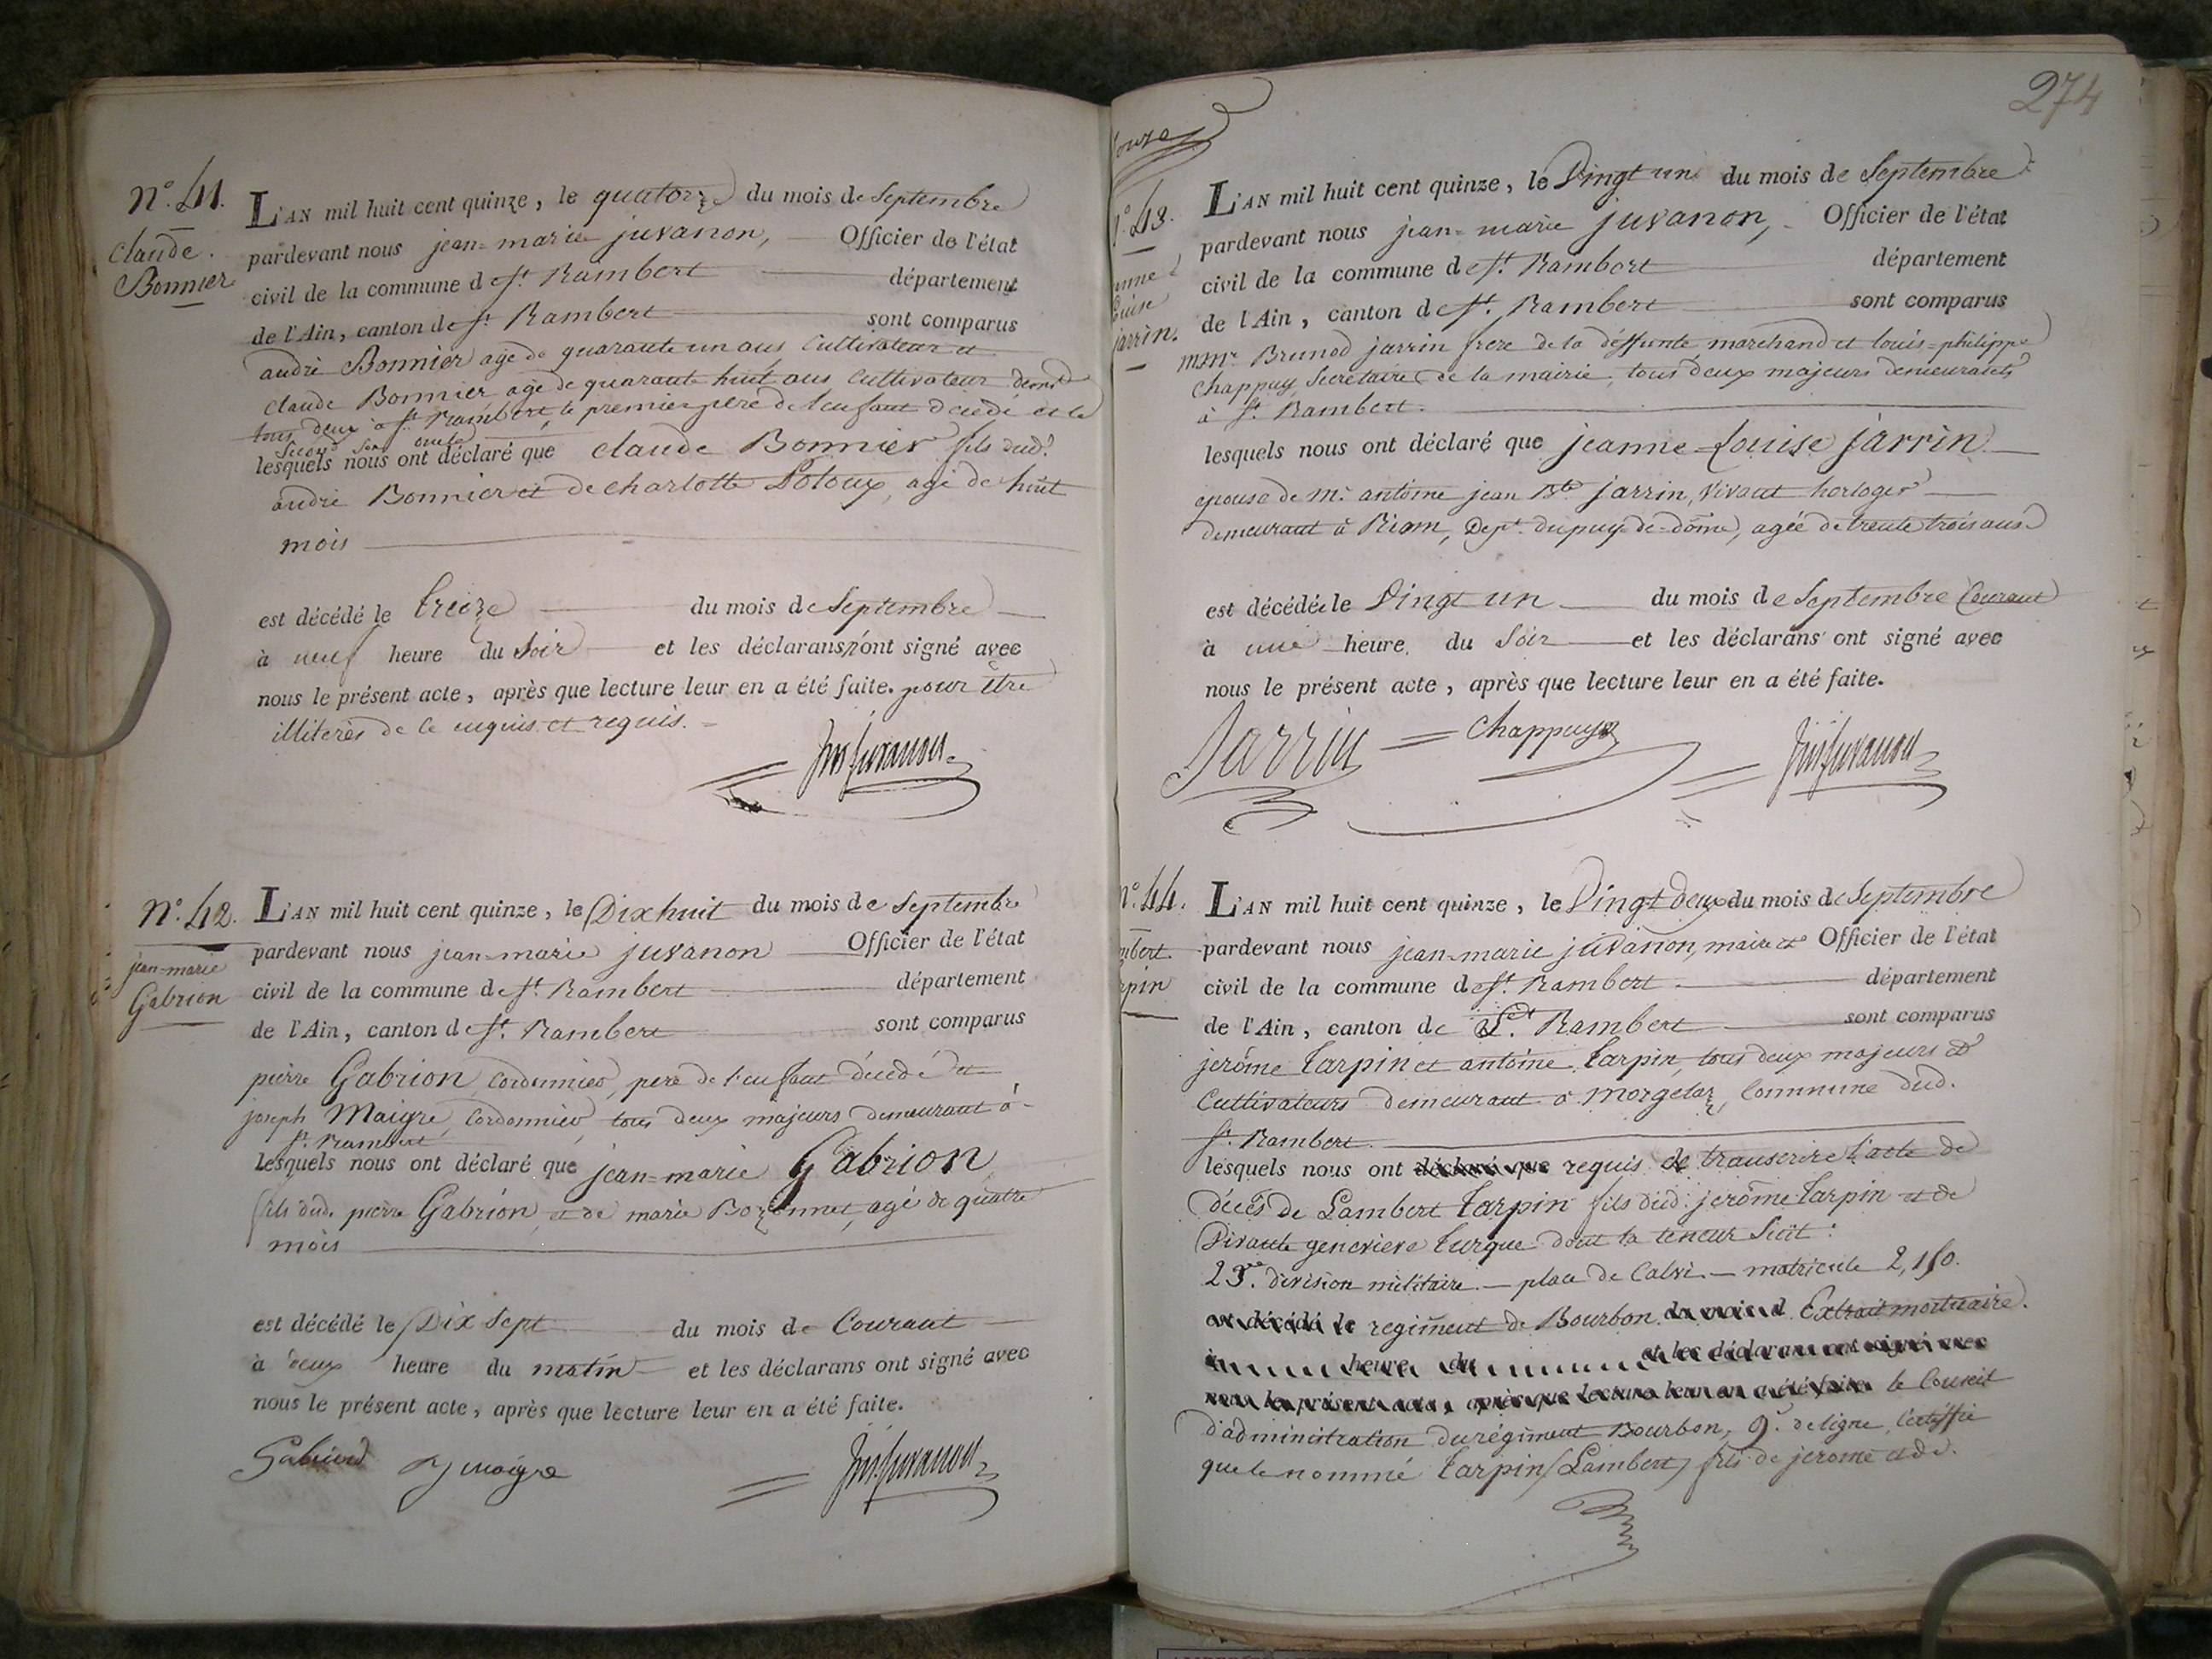 N.° 41.
Claude
Bonnier
L'AN mil huit cent quinze, le quatorze du mois de Septembre
pardevant nous jean-marie juvanon, Officier de l'état
civil de la commune de St. Rambert département
de l'Ain, canton de St. Rambert sont comparus
andré Bonnier agé de quarante un ans Cultivateur et
Claude Bonnier agé de quarante huit ans Cultivateur demt
tous deux à St. Rambert, le premier pere de l'enfant décédé et le
Second Son oncle
lesquels nous ont déclaré que Claude Bonnier fils dud.t
andré Bonnier et de charlotte Poloux, agé de huit
mois
est décédé le treize du mois de Septembre
à neuf heure du Soir et les déclarans n'ont signé avec
nous le présent acte, après que lecture leur en a été faite. pour être
illiterés de ce enquis et requis.
Juvanon
N.° 42.
jean-marie
Gabrion
L'AN mil huit cent quinze, le Dix huit du mois de Septembre
pardevant nous jean-marie juvanon Officier de l'état
civil de la commune de St. Rambert département
de l'Ain, canton de St. Rambert sont comparus
pierre Gabrion, Cordonnier, pere de l'enfant décédé et
joseph Maigre, Cordonnier, tous deux majeurs demeurant à
St. Rambert
lesquels nous ont déclaré que jean-marie Gabrion,
fils dud. pierre Gabrion, et de marie Bozonnet, agé de quatre
mois
est décédé le Dix Sept du mois de Courant
à deux heure du matin et les déclarans ont signé avec
nous le présent acte, après que lecture leur en a été faite.
Gabriond J maigre Juvanon
274
N.° 43.
jarrin.
L'AN mil huit cent quinze, le Vingt un du mois de Septembre
pardevant nous jean-marie juvanon, Officier de l'état
civil de la commune de St. Rambert département
de l'Ain, canton de St. Rambert sont comparus
Brunod jarrin frere de la déffunte, marchand et louis-philippe
Chappuy Secretaire de la mairie, tous deux majeurs demeurants
à St. Rambert.
lesquels nous ont déclaré que jeanne-Louise jarrin
epouse de M.r antoine jean B.te jarrin, vivant horloger
demeurant à Riom, Dep.t du puy-de-dôme, agée de trente trois ans
est décédée le Vingt un du mois de Septembre Courant
à une heure du Soir et les déclarans ont signé avec
nous le présent acte, après que lecture leur en a été faite.
Jarrin Chappuy Juvanon
N.° 44.
L'AN mil huit cent quinze, le Vingt Deux du mois de Septembre
pardevant nous jean-marie juvanon, maire et Officier de l'état
civil de la commune de St. Rambert département
de l'Ain, canton de St. Rambert sont comparus
jerôme Tarpin et antoine Tarpin, tous deux majeurs et
Cultivateurs demeurant à morgelaz, Commune dud.
St. Rambert.
lesquels nous ont déclaré que requis de transcrire l'acte de
décès de Lambert Tarpin fils dud. jerôme Tarpin et de
Vivante genevieve Turque dont la teneur Suit :
23.e division militaire. — place de Calvi. — matricule 2,150.
est décédé le regiment de Bourbon. du mois d Extrait mortuaire.
à heure du et les déclarans ont signé avec
nous le présent acte, après que lecture leur en a été faite. le Conseil
d'administration du régiment Bourbon, 9.e de ligne, Certiffie
que le nommé Tarpin (Lambert) fils de jerome et de.